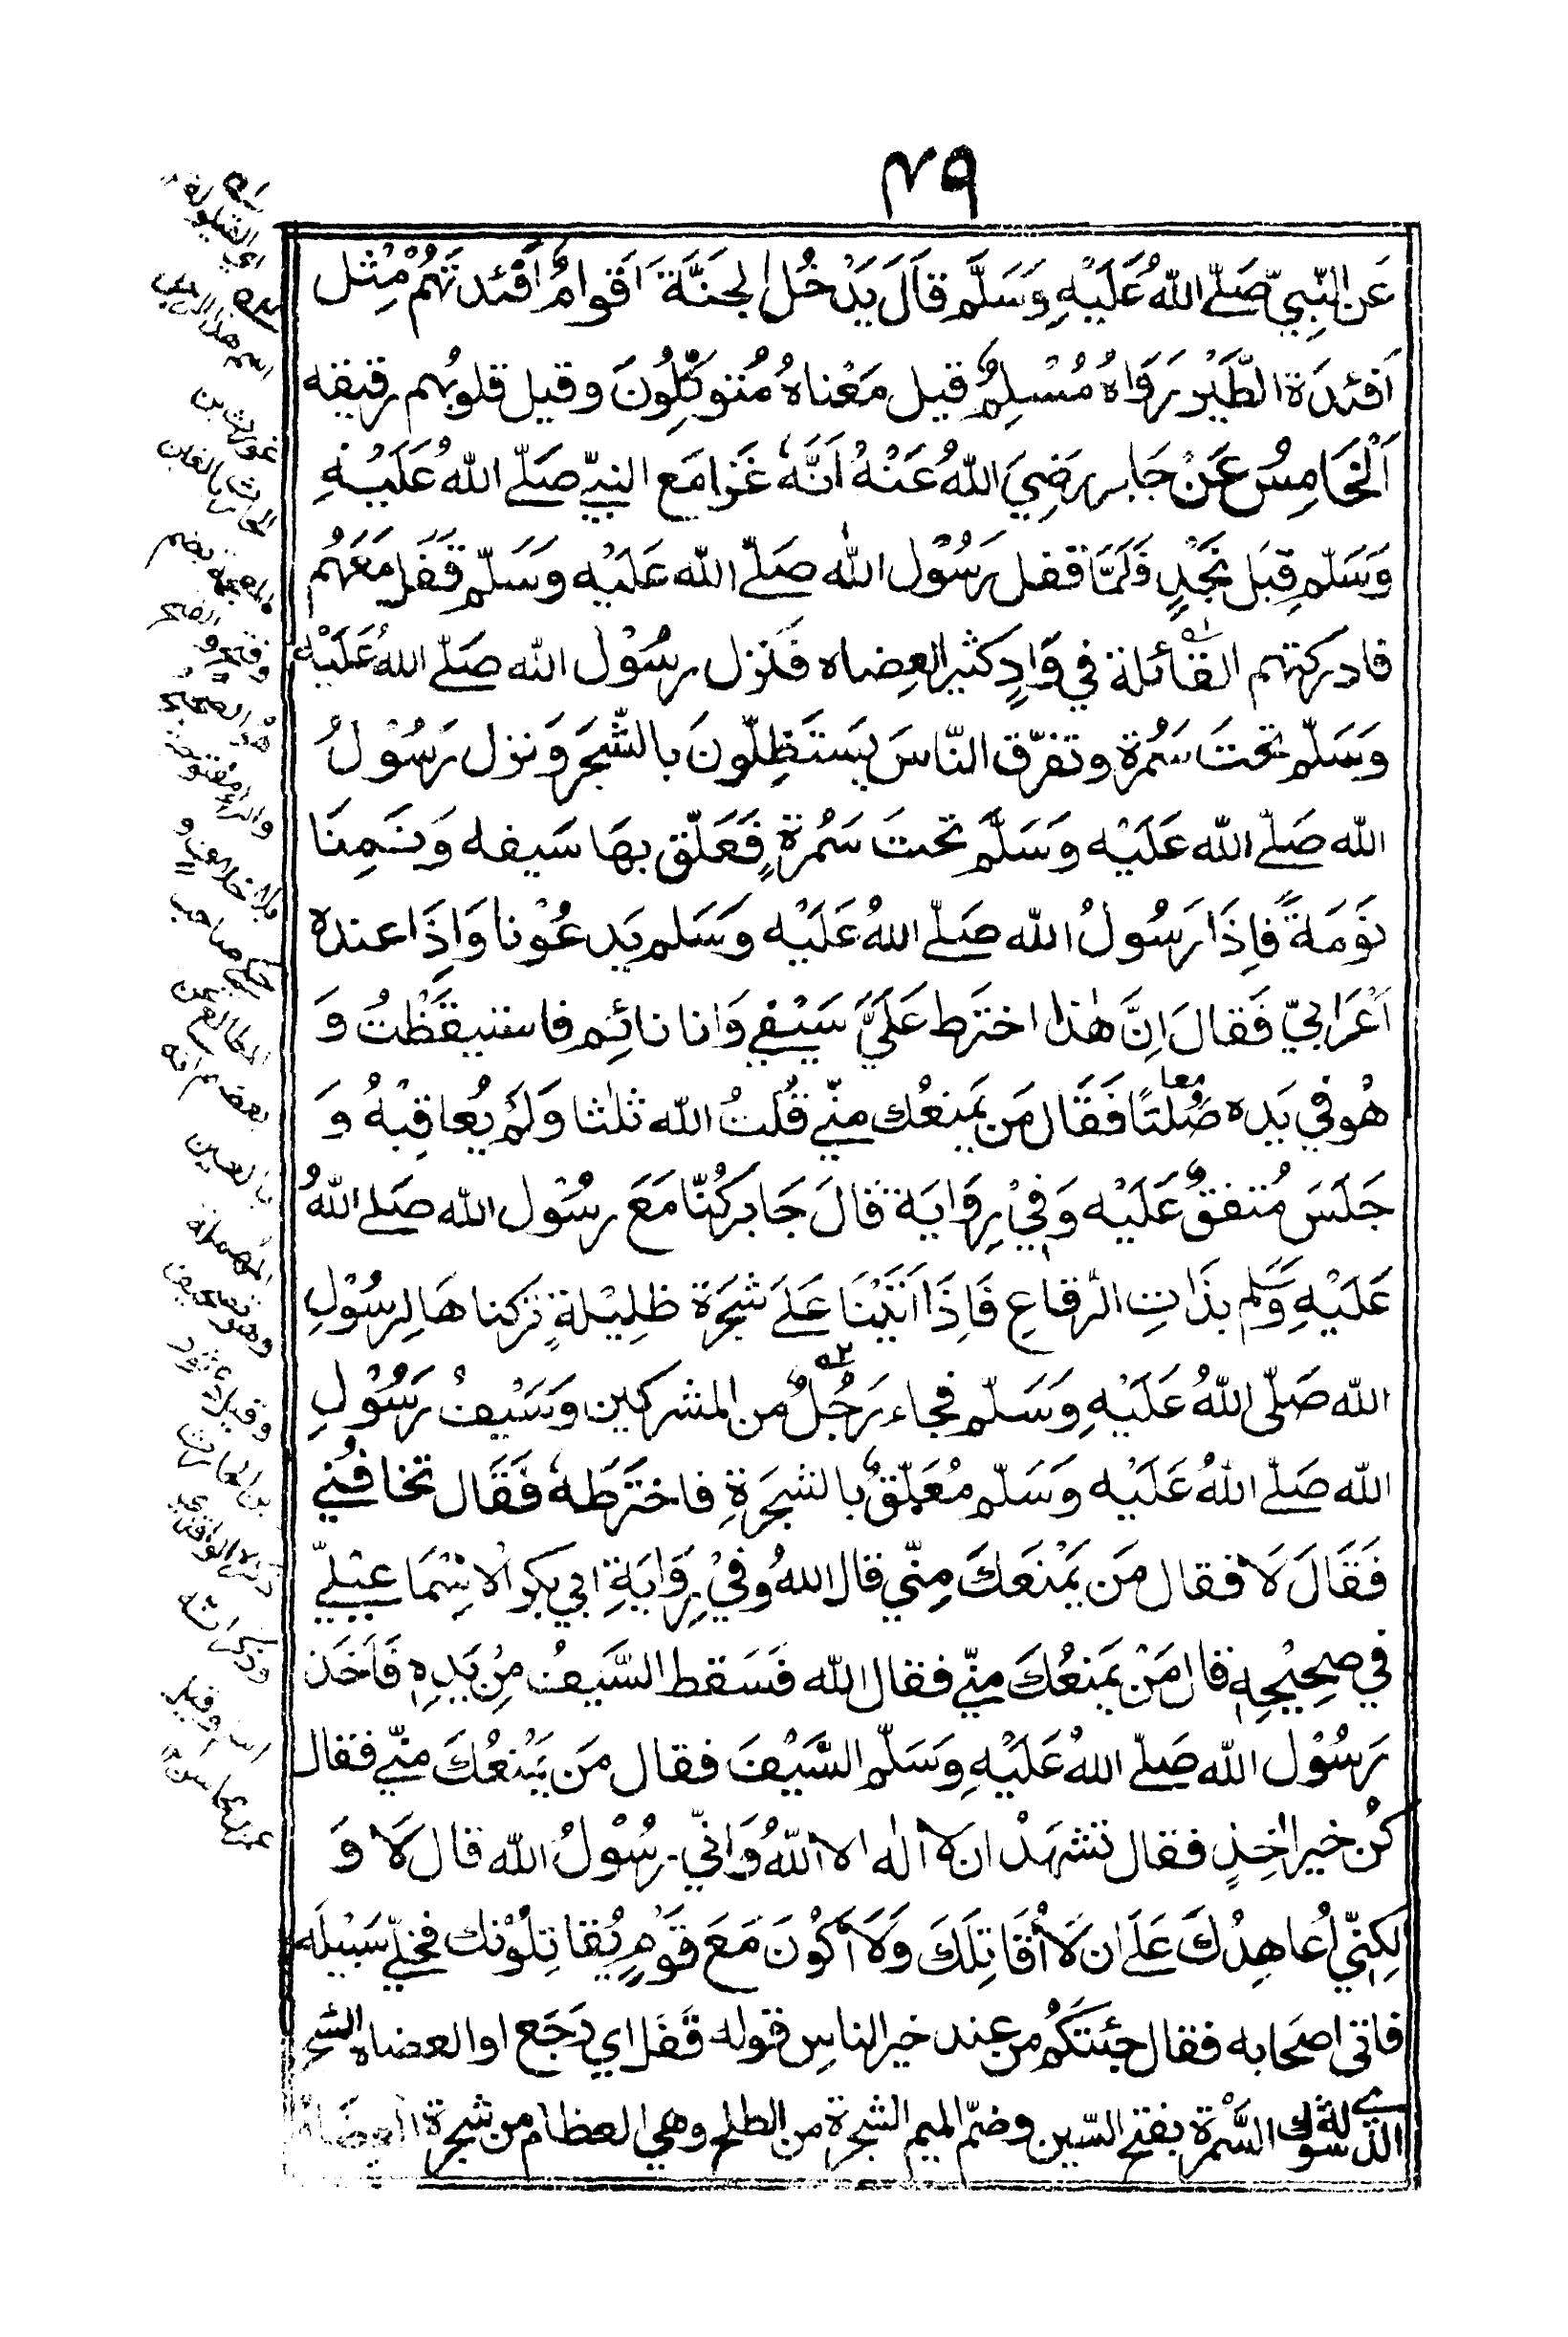 ٧٩
عَنِ النَّبِيِّ صَلَّى اللهُ عَلَيْهِ وَسَلَّمَ قَالَ يَدْخُلُ الْجَنَّةَ اَقْوَامٌ اَفْئِدَتُهُمْ مِثْل
اَفْئِدَةِ الطَّيْرِ رَوَاهُ مُسْلِمٌ قيل مَعْناهُ مُتوكِّلُونَ وقيل قلوبُهم رقيقه
اَلْخَامِسُ عَنْ جَابِر رَضِيَ اللهُ عَنْهُ اَنَّهُ غَزا مَع النبيّ صَلّى اللهُ عَلَيْهِ
وَسَلّم قِبَل نَجْدٍ فَلَمَّا قفل رَسُوْل الله صَلّى الله عَلَيْه وَسَلّم قَفَل مَعَهُم
فادركتهم القائلة في وَادٍ كثير العِضاه فَنَزل رسُوْل الله صَلّى اللهُ عَلَيْه
وَسَلّم تحتَ سَمُرة وتفرّق النّاس يَستَظِلّونَ بالشّجَر وَنزل رَسُوْلُ
الله صَلّى الله عَلَيْه وَسَلَّم تحتَ سَمُرةٍ فَعَلّق بهَا سَيفه وَنمِنَا
نَوْمَةً فَاِذَا رَسُولُ الله صَلّى اللهُ عَلَيْه وَسَلم يَدعُوْنا وَاِذَا عنده
اَعْرَابيّ فَقالَ اِنَّ هٰذا اخترَط عَلَيَّ سَيْفي وَانا نائِم فاستيقَظْتُ وَ
هُو في يَده صَلْتًا فَقَال مَن يَمنعُك منّي قُلتُ الله ثلٰثا وَلَم يُعاقِبْهُ وَ
معا
جَلَسَ مُتفقٌ عَلَيْه وَفِيْ رِوَايَة قَالَ جَابر كُنّا مَعَ رسُوْل الله صَلى اللهُ
عَلَيْهِ وَسَلم بذَاتِ الرّقاعِ فَاِذَا اَتَيْنَا عَلَى شَجَرة ظلِيْلةٍ تركنا هَا لِرسُوْلِ
الله صَلّى اللهُ عَلَيْهِ وَسَلّم فجاء رَجُلٌ من المشركين وَسَيْفُ رَسُوْلِ
الله صَلّى اللهُ عَلَيْه وَسَلّم مُعَلّقٌ بالشجَرةِ فاخترَطَهُ فَقَال تخافُني
فَقَالَ لَا فقال مَن يَمْنَعَكَ مِنّي قال اللهُ وفيْ رِوَايَةِ ابي بكر الاِسْمَاعيْليّ
في صحِيْحِهِ قال مَنْ يَمنعُكَ منّي فقال الله فَسَقط السَّيفُ مِنْ يَدِهِ فَاَخَذ
رَسُوْل الله صَلّى اللهُ عَلَيْهِ وَسَلّم السَّيْفَ فقال مَن يَمْنعُكَ منّي فقال
كُن خير اٰخِذٍ فقال تشهَدْ ان لا اله الا اللهُ وَانّي رسُوْلُ الله قال لَا وَ
لكِنّي اُعاهِدُكَ عَلَى ان لَا اُقَاتِلَكَ وَلَا اَكُوْنَ مَعَ قَوْمٍ يُقاتِلُوْنك فخلّى سَبيْلَه
فاتى اصحَابه فقال جئتكُم من عِند خير الناس قوله قَفَل اي رَجَع او العضاه الشجر
الذي له شوك السَّمُرة بفتح السّين وضمّ الميم الشجرة من الطلح وهي العظام من شجرة العضاة
اي القيلولة
اسم هذا
غورث بن
الحارث بالغين
المعجمة بضم
وفتح و
هو الصحيح
والراء مفتوحة
حكى صاحب
المطالع عن
بعضهم انه
بالعين
المهملة
وهو تصحيف
وقيل دعثور
بن الحارث
ذكره الواقدي
وذكر انه
اسلم وقيل